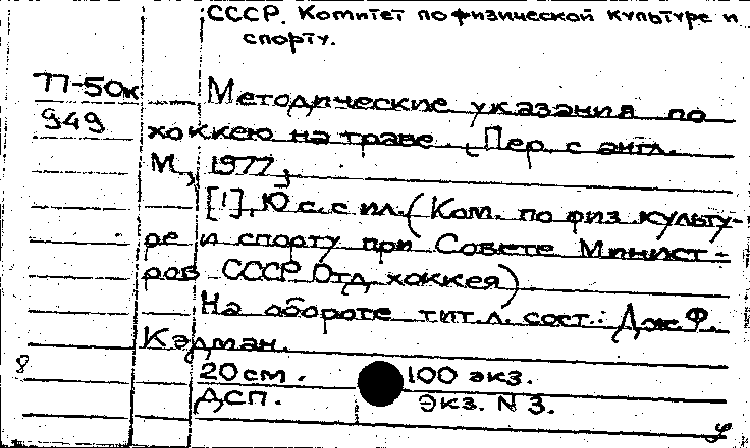 СССР. Комитет по физической культуре и
спорту.
77-50к
Методические указания по
949
хоккею на траве. Пер. с англ.
М., 1977,
[1], с. с ил. (Ком. по физ культу-
ре и спорту при Совете Минист-
ров СССР Отд хоккея)
На обороте тит. л. сост.: Дж. Ф.
Кэдман.
8
20 см. 100 экз.
ДСП. Экз. N 3.